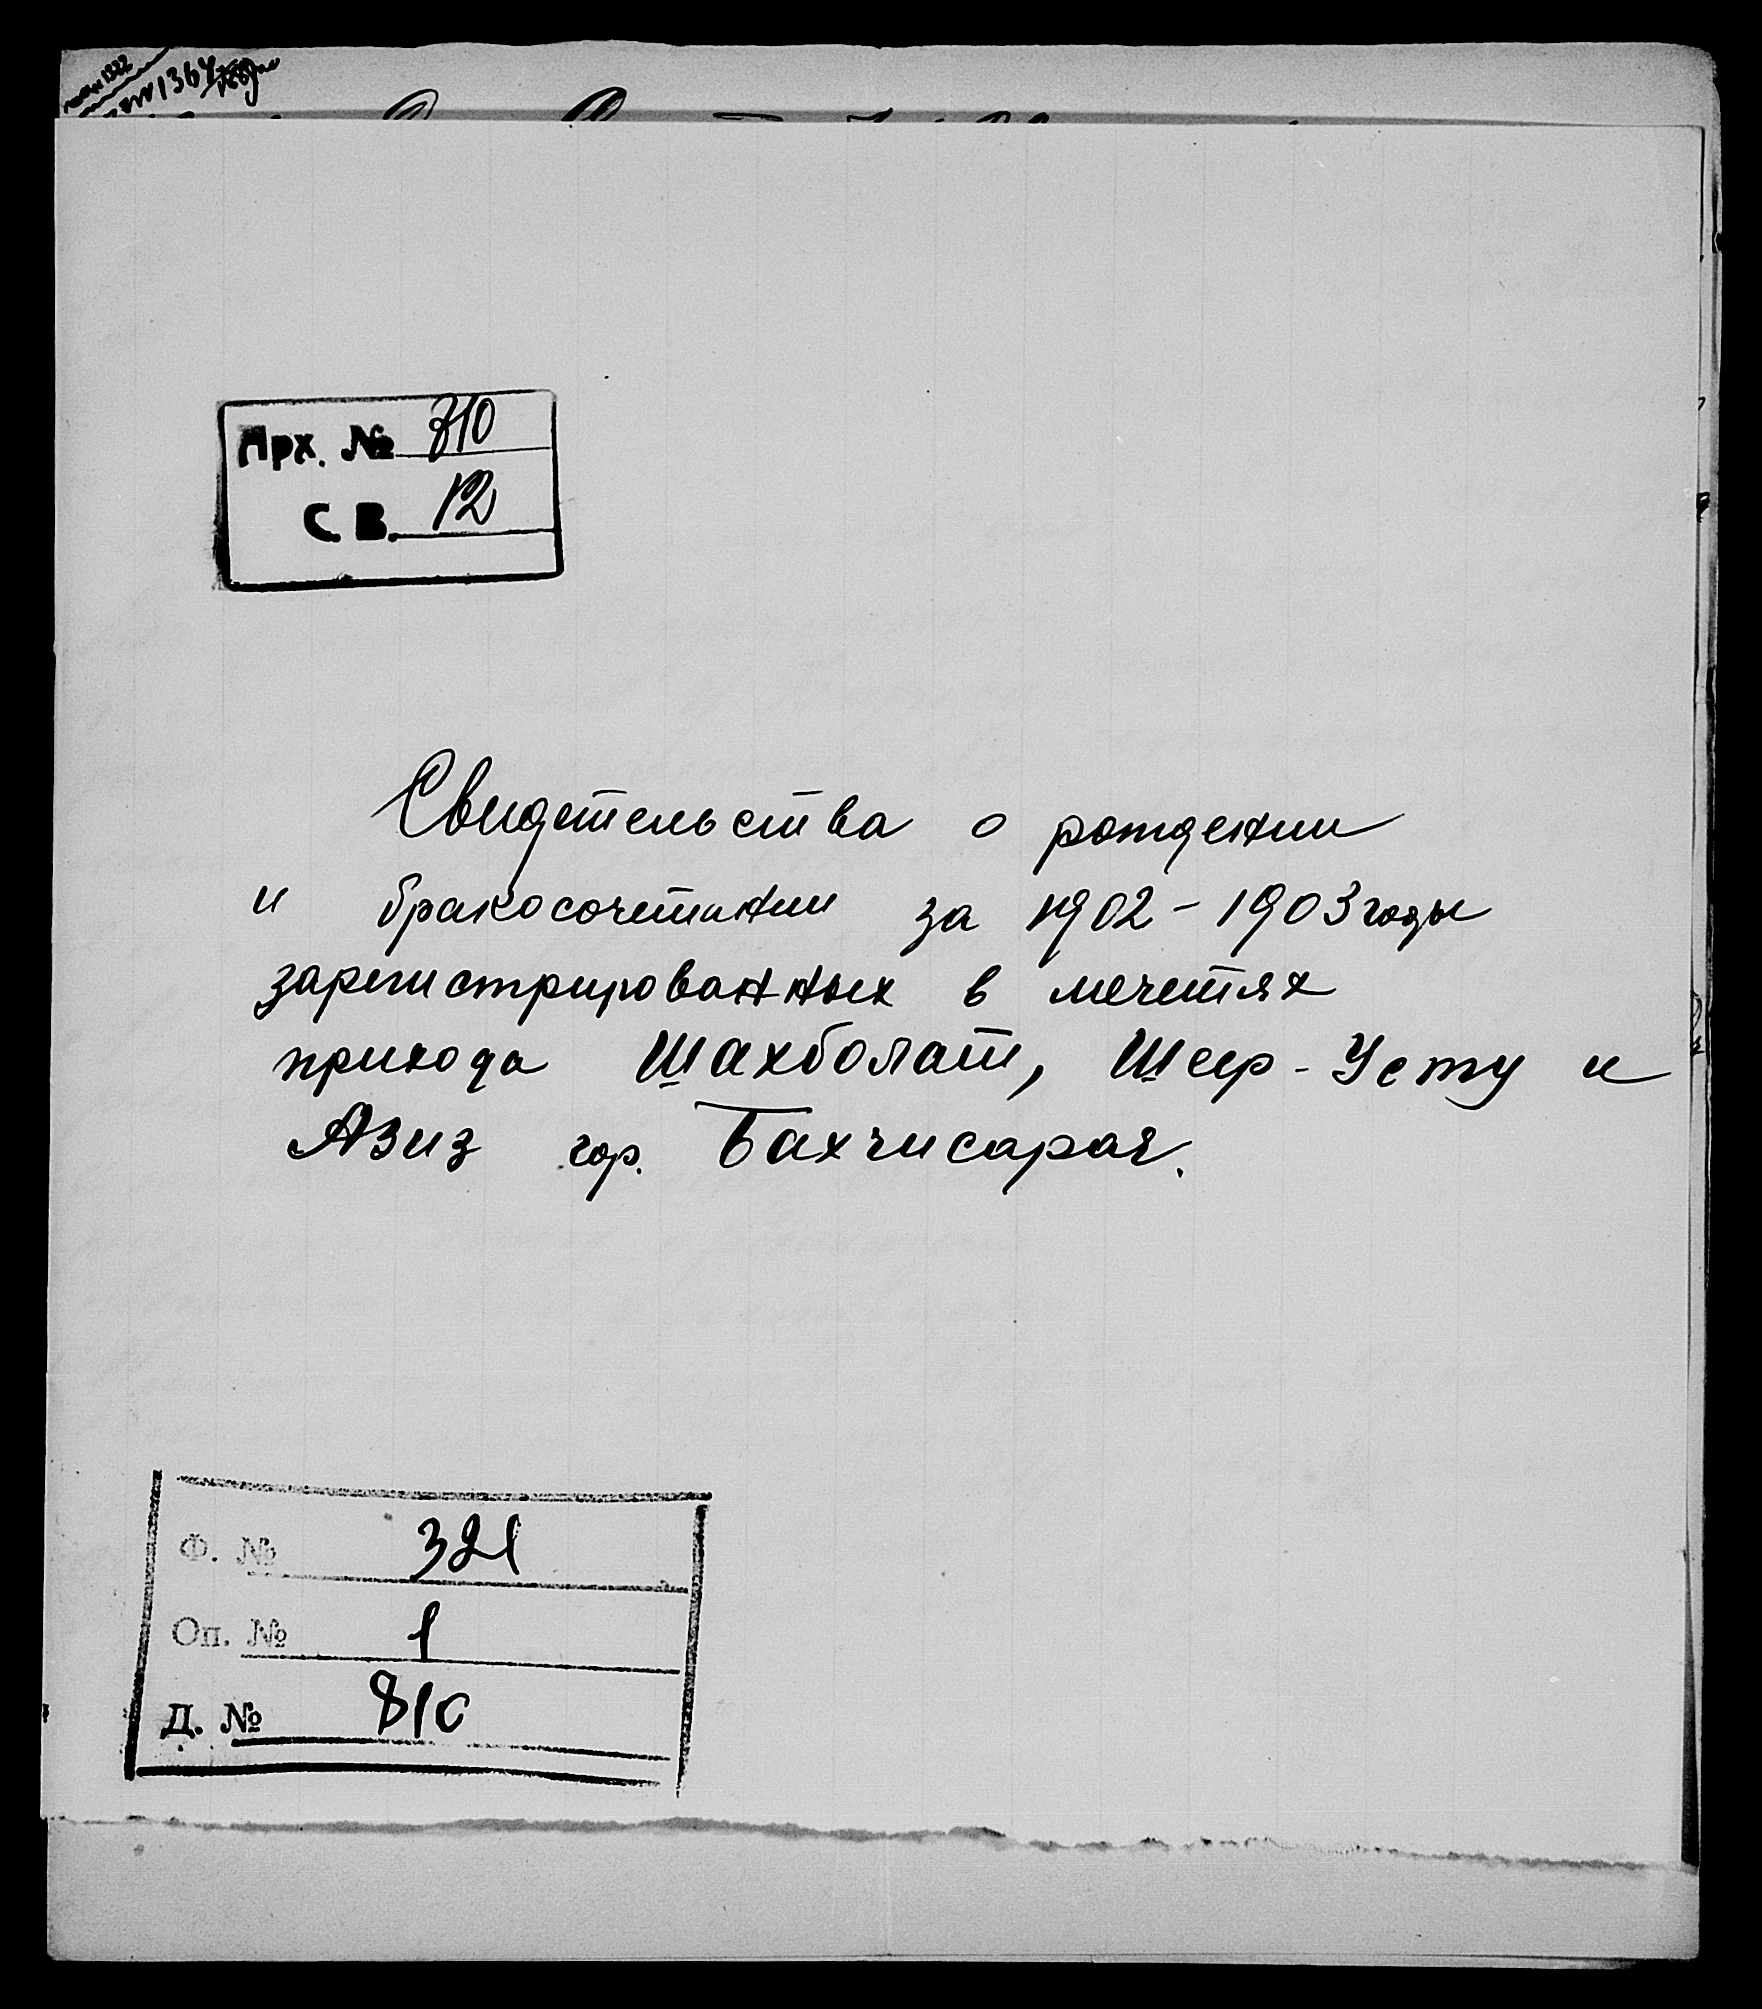 1364
Арх. № 810
С. В. 12
Свидетельства о рождении
и бракосочетании за 1902-1903 годы
зарегистрированных в мечетях
прихода Шахболат, Шеер-Усту и
Азиз гор. Бахчисарая.
Ф. № 321
Оп. № 1
Д. № 810